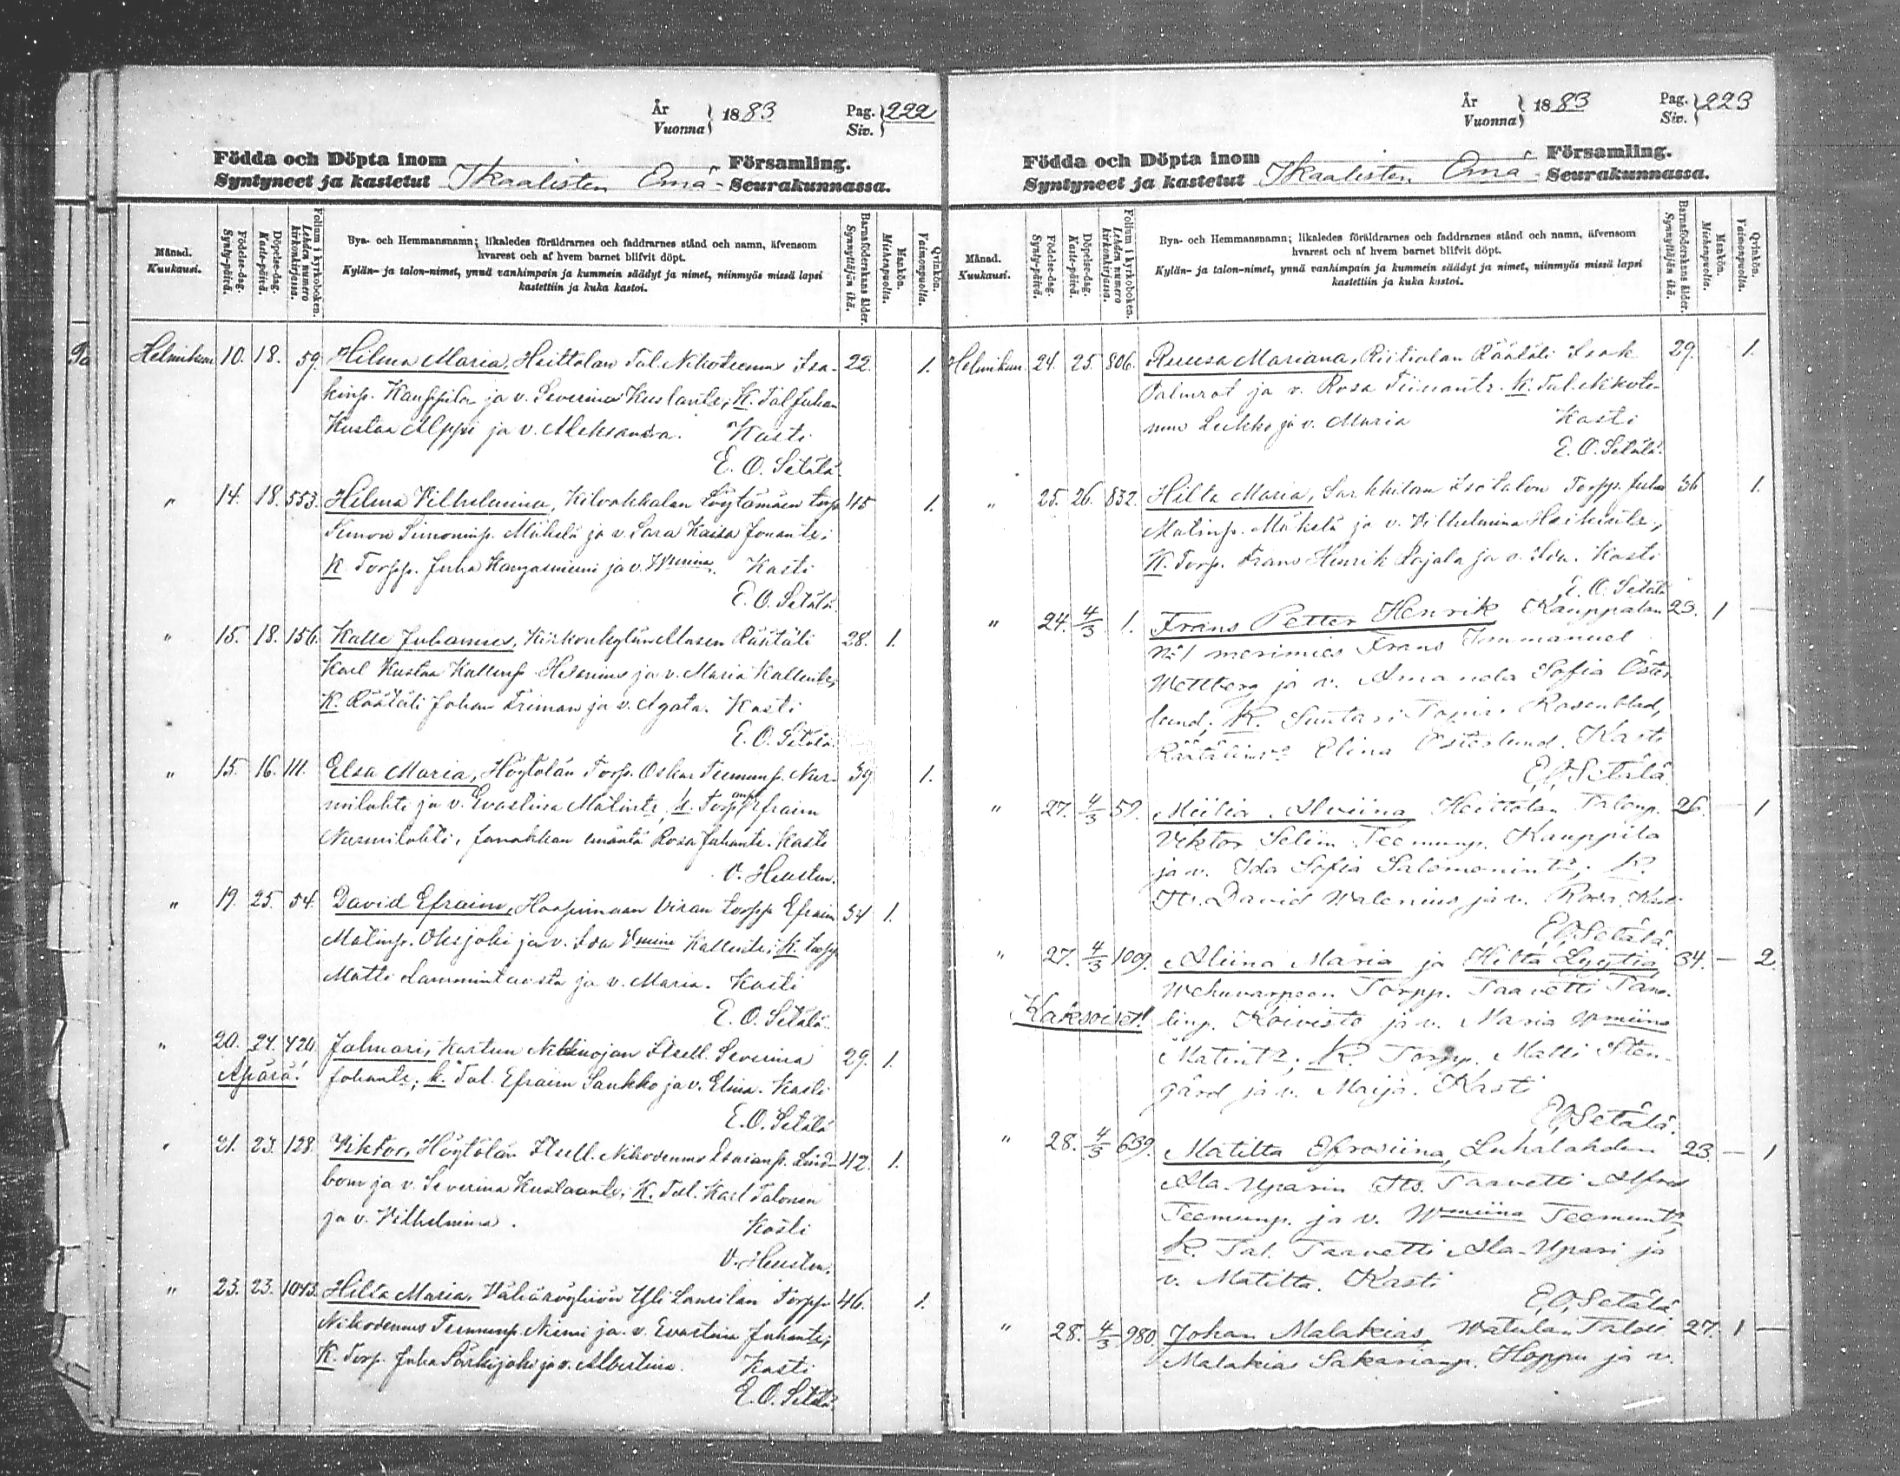 År
Vuonna } 1883
Pag.
Siv. } 222
Födda och Döpta inom
Syntyneet ja kastetut Ikaalisten Emä- Församling.
Seurakunnassa.
Månad.
Kuukausi.
Födelse-dag.
Synty-päivä.
Döpelse-dag.
Kaste-päivä.
Folium i kyrkoboken.
Lehden numero kirkonkirjassa.
Bya- och Hemmansnamn; likaledes föräldrarnes och faddrarnes stånd och namn, äfvensom
hvarest och af hvem barnet blifvit döpt.
Kylän- ja talon-nimet, ynnä vanhimpain ja kummein säädyt ja nimet, niinmyös missä lapsi
kastettiin ja kuka kastoi.
Barnaföderskans ålder.
Synnyttäjän ikä.
Mankön.
Miehenpuolia.
Qvinkön.
Vaimonpuolia.
Helmikuu 10. 18. 59. Hilma Maria, Heittolan Tal. Nikoteemus Isa- 22. 1.
kinp. Kauppila ja v. Severina Kustaantr; K. Tal Juhan
Kustaa Alppi ja v. Aleksandra. Kasti
E. O. Setälä.
" 14. 18. 553. Hilma Vilhelmina, Kilvakkalan torp. 45 1.
Simon Simoninp. Mäkelä ja v. Sara Kaisa Juhantr;
K Torpp. Juha Kangasniemi ja v. Wmina. Kasti
E. O. Setälä.
" 15. 18. 156. Kalle Juhannes, Kirkonkylän Räätäli 28. 1.
Karl Kustaa Kallenp. Helenius ja v. Maria Kallentr;
K. Räätäli Johan Friman ja v. Agata. Kasti
E. O. Setälä.
" 15. 16. 111. Elsa Maria, Höytölän Torp. Oskar Teemunp. Nur- 39. 1.
milahti ja v. Evastina Matintr, K. Torpp Efraim
Nurmilahti, emäntä Rosa Juhantr. Kasti
V. Heusten.
" 19. 25. 54. David Efraim, Haapimaan torpp Efraim 34 1.
Matinp. Ohsjoki ja v. Ida Wmina Kallentr; K. torp
Matti ja v. Maria. Kasti
E. O. Setälä.
" 20. 24. 420. Jalmari, Itsell. Severina 29. 1.
Äpärä! Johantr; K. Tal. Efraim Sankko ja v. Elina. Kasti
E. O. Setälä
" 21. 23. 128. Viktor, Höytölän Itsell. Nikodemus Esaianp. Lind- 42. 1.
bom ja v. Severina Kustaantr; K. Tal. Karl Talonen
ja v. Vilhelmina. Kasti
V. Heusten.
" 23. 23. 1043. Hilta Maria, Vähäröyhiön Yli Laurilan Torpp. 46. 1.
Nikodemus Teemunp. Niemi ja v. Evastina Juhantr;
K. Torp. Juha Särkijoki ja v. Albertina. Kasti
E. O. Setälä
År
Vuonna } 1883
Pag.
Siv. } 223
Födda och Döpta inom
Syntyneet ja kastetut Ikaalisten Emä- Församling.
Seurakunnassa.
Månad.
Kuukausi.
Födelse-dag.
Synty-päivä.
Döpelse-dag.
Kaste-päivä.
Folium i kyrkoboken.
Lehden numero kirkonkirjassa.
Bya- och Hemmansnamn; likaledes föräldrarnes och faddrarnes stånd och namn, äfvensom
hvarest och af hvem barnet blifvit döpt.
Kylän- ja talon-nimet, ynnä vanhimpain ja kummein säädyt ja nimet, niinmyös missä lapsi
kastettiin ja kuka kastoi.
Barnaföderskans ålder.
Synnyttäjän ikä.
Mankön.
Miehenpuolia.
Qvinkön.
Vaimonpuolia.
Helmikuu. 24. 25. 806. Ruusa Mariana, Riitialan Räätäli Isak 29. 1.
Palmrot ja v. Rosa Tiinantr. K. Tal. Nikote-
mus Lukko ja v. Maria Kasti
E. O. Setälä.
" 25. 26. 832. Hilta Maria, Sarkkilan Isotalon Torpp. Juha 36 1.
Matinp. Mäkelä ja v. Vilhelmina Heikintr,
K. Torp. Frans Henrik Pojala ja v. Ida. Kasti
E. O. Setälä
" 24. 4/3 1. Frans Petter Henrik Kauppalan 23. 1 —
No 1 merimies Frans Immanuel
Wettberg ja v. Amanda Sofia Öster-
lund; K. Suutari Rosenblad,
Elina Österlund. Kasti
E. O. Setälä.
" 27. 4/3 59. Miilia Alviina Heittolan Talonp. 26. — 1
Vihtor Seliim Teemunp. Kauppila
ja v. Ida Sofia Salomonintr; K.
David Walenius ja v. Rosa. Kasti
E. O. Setälä.
" 27. 4/3 1009. Aliina Maria ja Hilta Lyytia, 34. — 2
Kaksoiset! Wehuvarpeen Torpp. Taavetti Taav-
linp. Koivisto ja v. Maria Wmiina
Matintr; K. Torpp. Matti Sten-
gård ja v. Maija. Kasti
E. O. Setälä.
" 28. 4/3 639. Matilta Efrosiina, Luhalahden 23. — 1
Ala-Yparin Its. Taavetti Alfred
Teemunp. ja v. Wmiina Teemuntr,
K. Tal. Taavetti Ala-Ypari ja
v. Matilta. Kasti
E. O. Setälä
" 28. 4/3 980. Johan Malakias, Watulan Talon 27. 1 —
Malakias Sakarianp. Hoppu ja v.